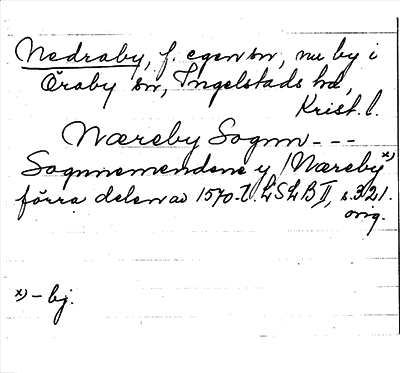 Nedraby, f. egen sn, nu by i
Öraby sn, Ingelstads hd,
Krist. l.
Næreby Sognn - - -
Sognnemendene y / Næreby x)
förra delen av 1570-t. LSLB II, s. 321.
orig.
x) - bj.